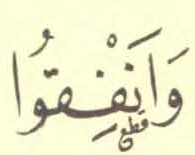 وَاَنْفِقُوا
قطع